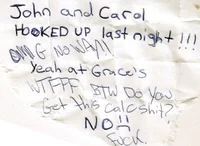 John and Carol
HOOKED UP last night!!!
OMG NO WAY!!
Yeah at Grace's
WTFFF BTW Do You
Get this calc shit?
NO!!
FUCK.